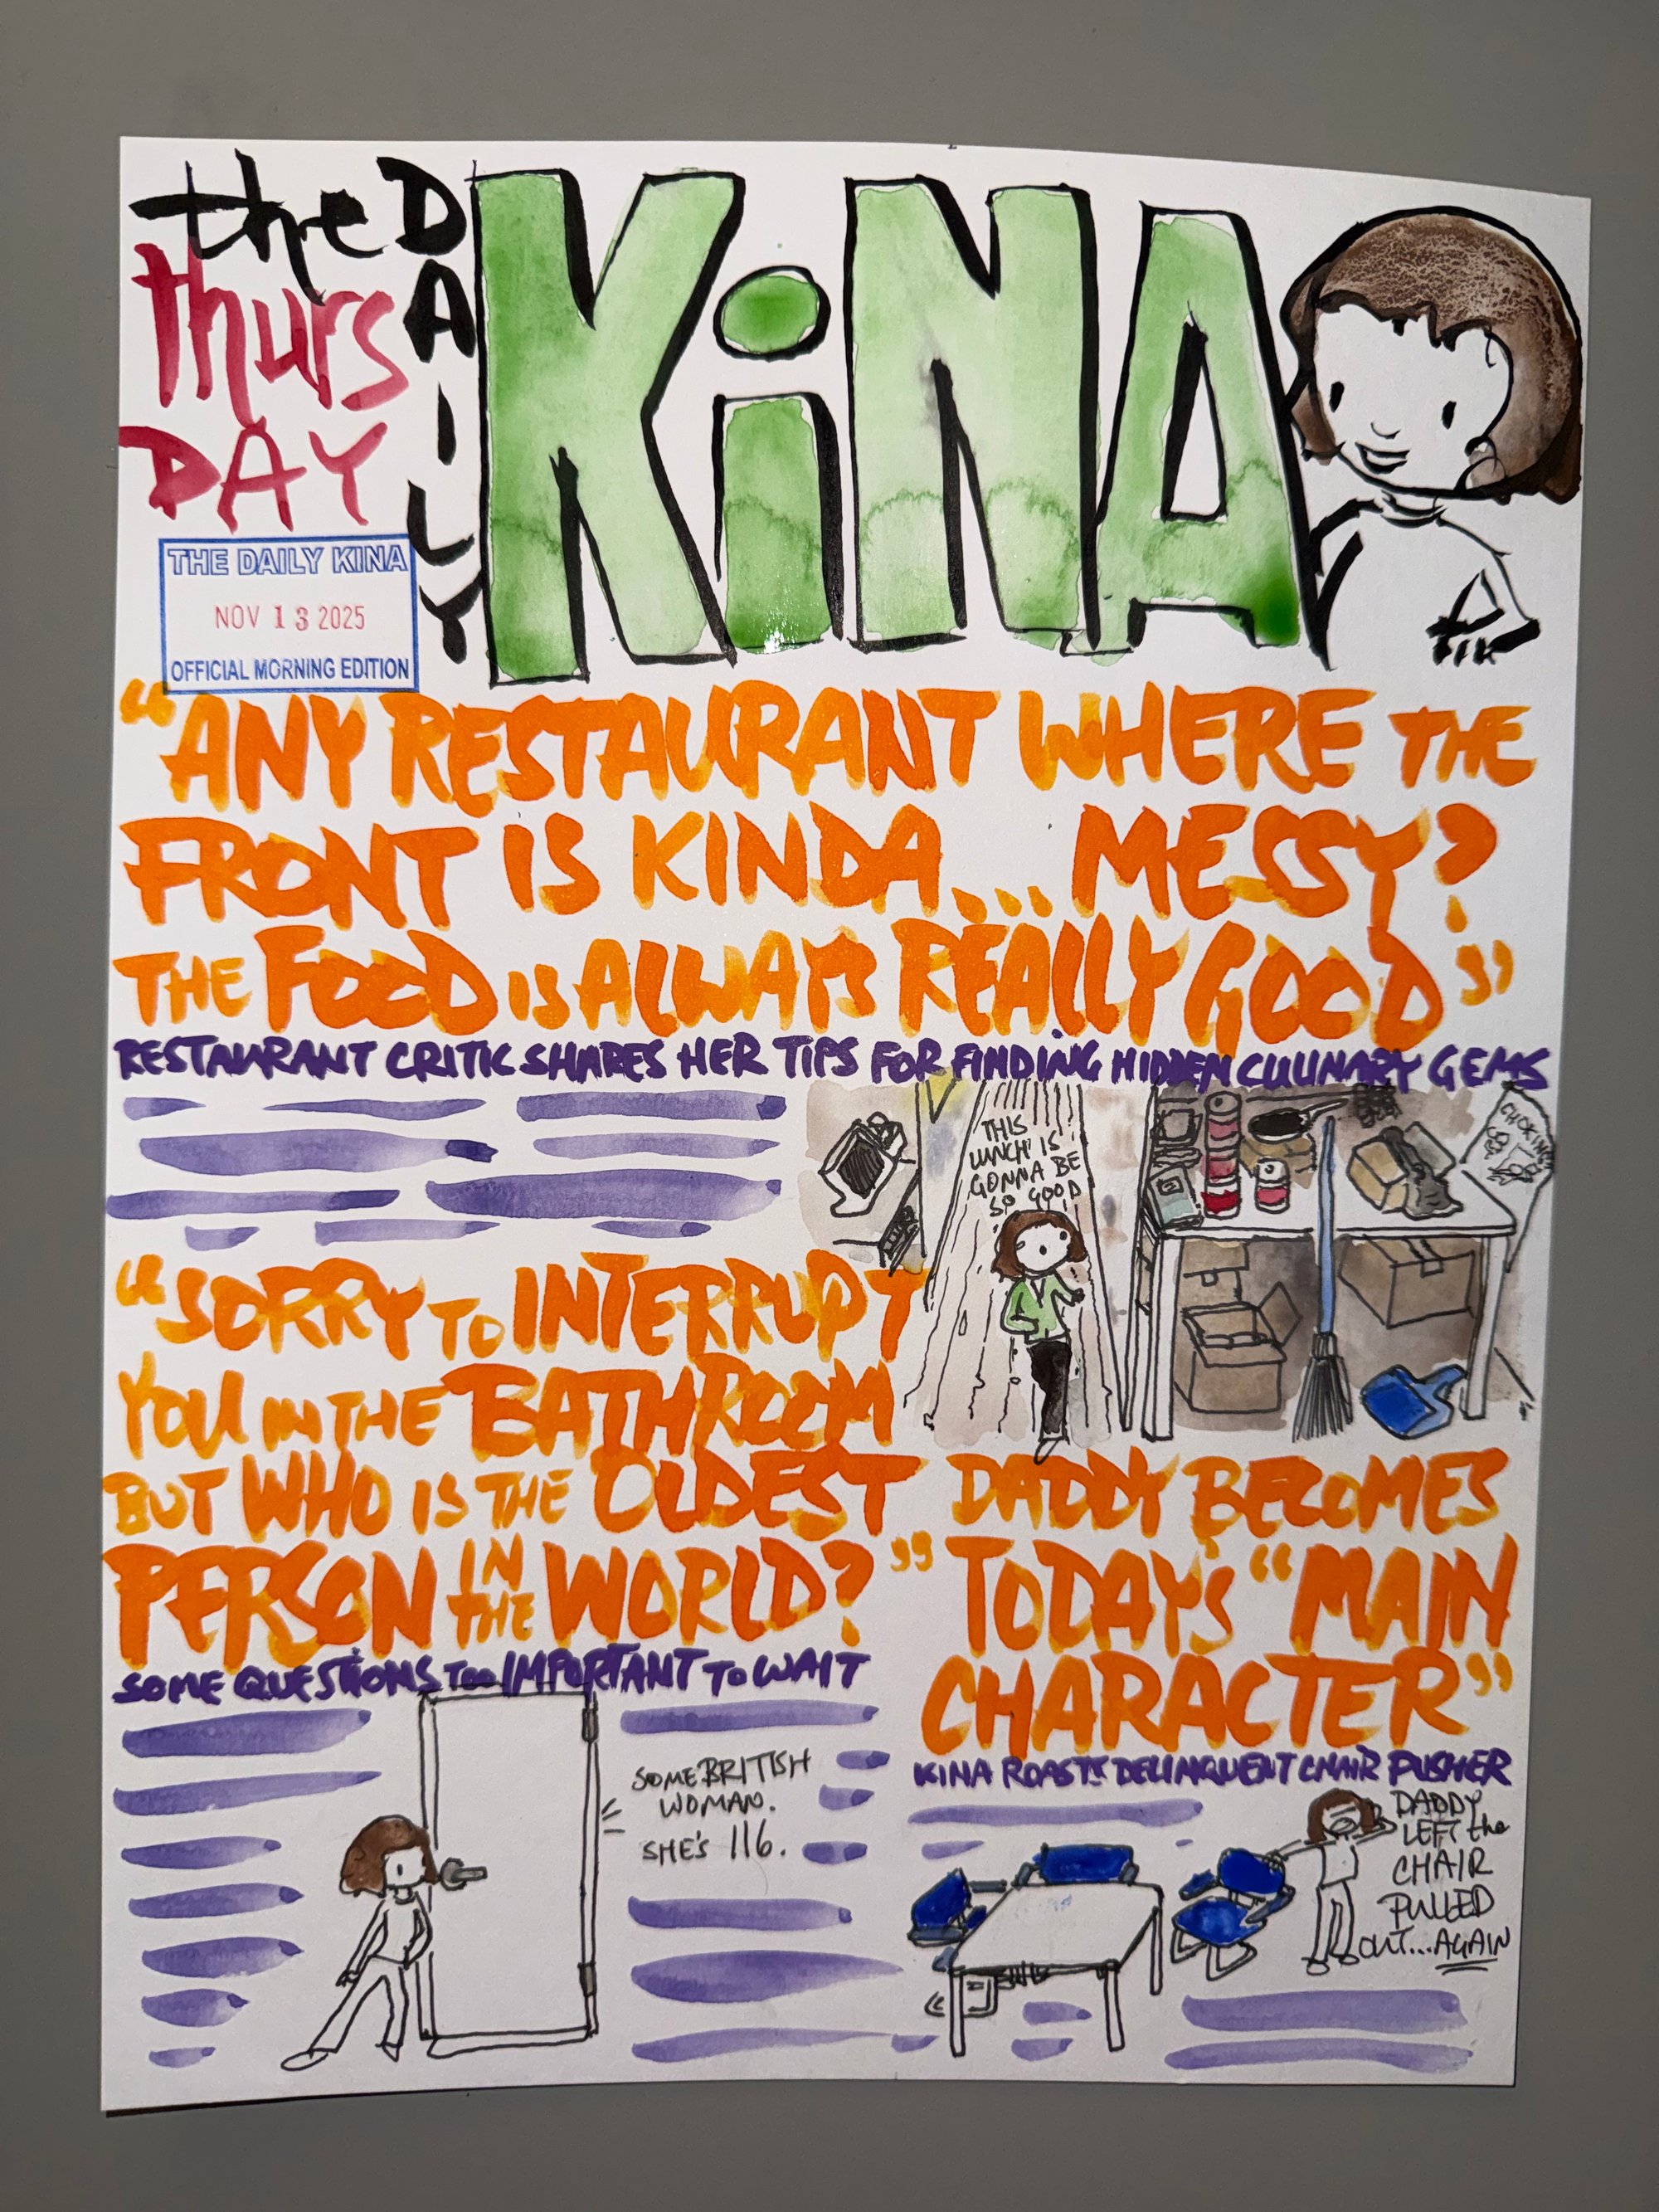 the DAILY
KiNA
thurs
DAY
THE DAILY KINA
NOV 13 2025
OFFICIAL MORNING EDITION
"ANY RESTAURANT WHERE THE
FRONT IS KINDA... MESSY?
THE FOOD IS ALWAYS REALLY GOOD"
RESTAURANT CRITIC SHARES HER TIPS FOR FINDING HIDDEN CULINARY GEMS
THIS
LUNCH IS
GONNA BE
SO GOOD
CHOKING
"SORRY TO INTERRUPT
YOU IN THE BATHROOM
BUT WHO IS THE OLDEST
PERSON IN THE WORLD?"
SOME QUESTIONS TOO IMPORTANT TO WAIT
SOME BRITISH
WOMAN.
SHE'S 116.
DADDY BECOMES
TODAY'S "MAIN
CHARACTER"
KINA ROASTS DELINQUENT CHAIR PUSHER
DADDY
LEFT the
CHAIR
PULLED
OUT...AGAIN